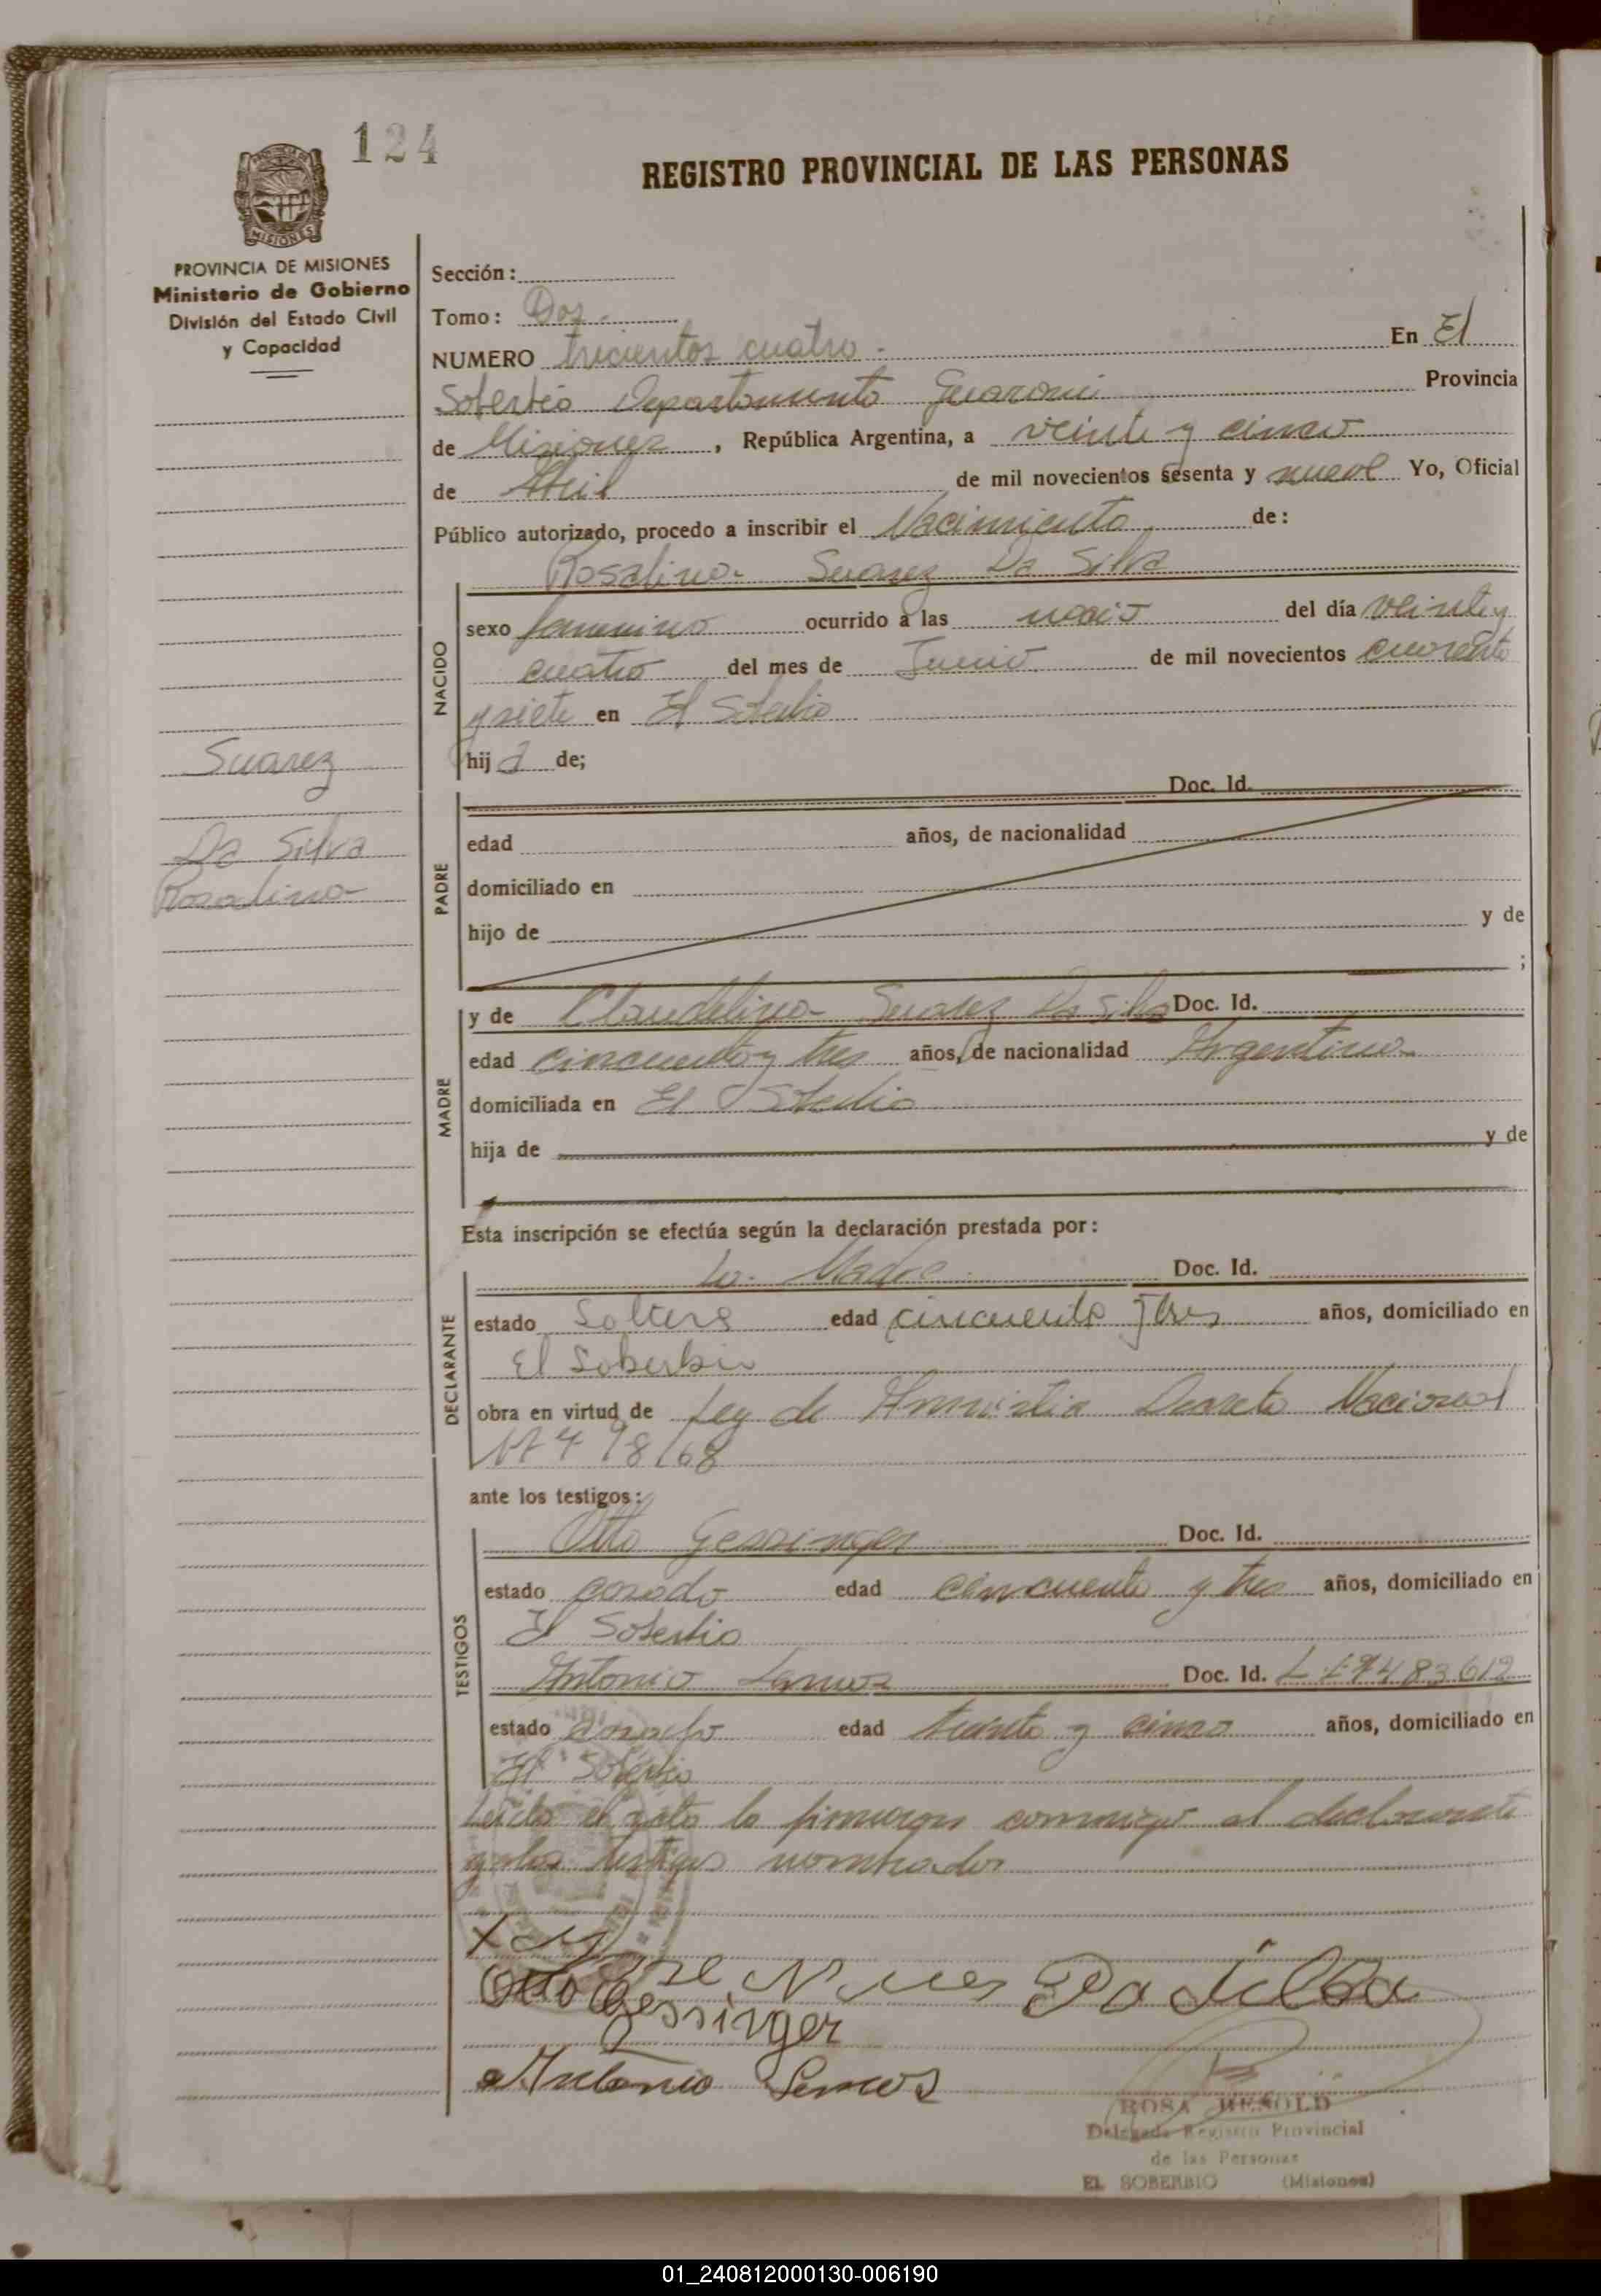 124
REGISTRO PROVINCIAL DE LAS PERSONAS
MISIONES
PROVINCIA DE MISIONES
Ministerio de Gobierno
División del Estado Civil
y Capacidad
Sección:
Tomo: Dos.
NUMERO trecientos cuatro. En El
Soberbio Departamento Guarani Provincia
de Misiones, República Argentina, a veinte y cinco
de Abril de mil novecientos sesenta y nueve Yo, Oficial
Público autorizado, procedo a inscribir el Nacimiento de:
Rosalina Suarez Da Silva
NACIDO
sexo femenino ocurrido a las nació del día veinte y
cuatro del mes de Junio de mil novecientos cuarenta
y siete en El Soberbio
hija de;
Suarez
Da Silva
Rosalina
PADRE
Doc. Id.
edad años, de nacionalidad
domiciliado en
hijo de y de
;
MADRE
y de Claudelina Suarez Da Silva Doc. Id.
edad cincuenta y tres años, de nacionalidad Argentina
domiciliada en El Soberbio
hija de y de
Esta inscripción se efectúa según la declaración prestada por:
DECLARANTE
La Madre Doc. Id.
estado Soltera edad cincuenta y tres años, domiciliado en
El Soberbio
obra en virtud de Ley de Amnistia Decreto Nacional
17498/68
ante los testigos:
TESTIGOS
Otto Gessinger Doc. Id.
estado casado edad cincuenta y tres años, domiciliado en
El Soberbio
Antonio Lemos Doc. Id. L.E 7483612
estado casado edad treinta y cinco años, domiciliado en
El Soberbio
Leida el acta la firmaron conmigo el declarante
y los testigos nombrados
Da Silva
Otto Gessinger
Antonio Lemos
ROSA
Delegada Registro Provincial
de las Personas
EL SOBERBIO (Misiones)
01_240812000130-006190